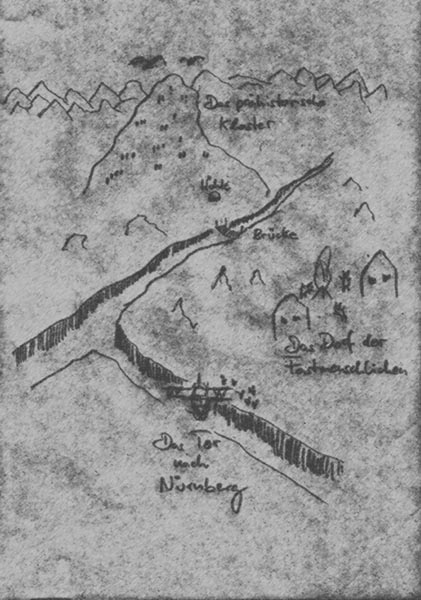 Das prähistorische
Kloster
Höhle
Brücke
Das Dorf der
Fastmenschlichen
Das Tor
nach
Nürnberg